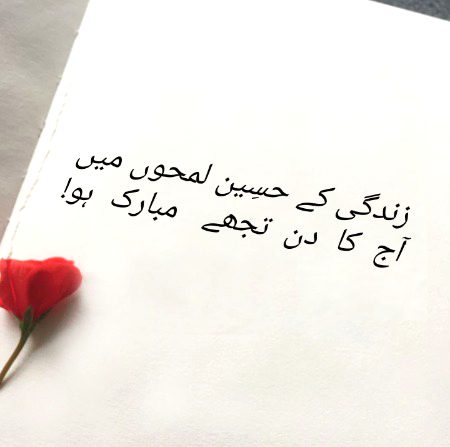 زندگی کے حسِین لمحوں میں
آج کا دن تجھے مبارک ہو!